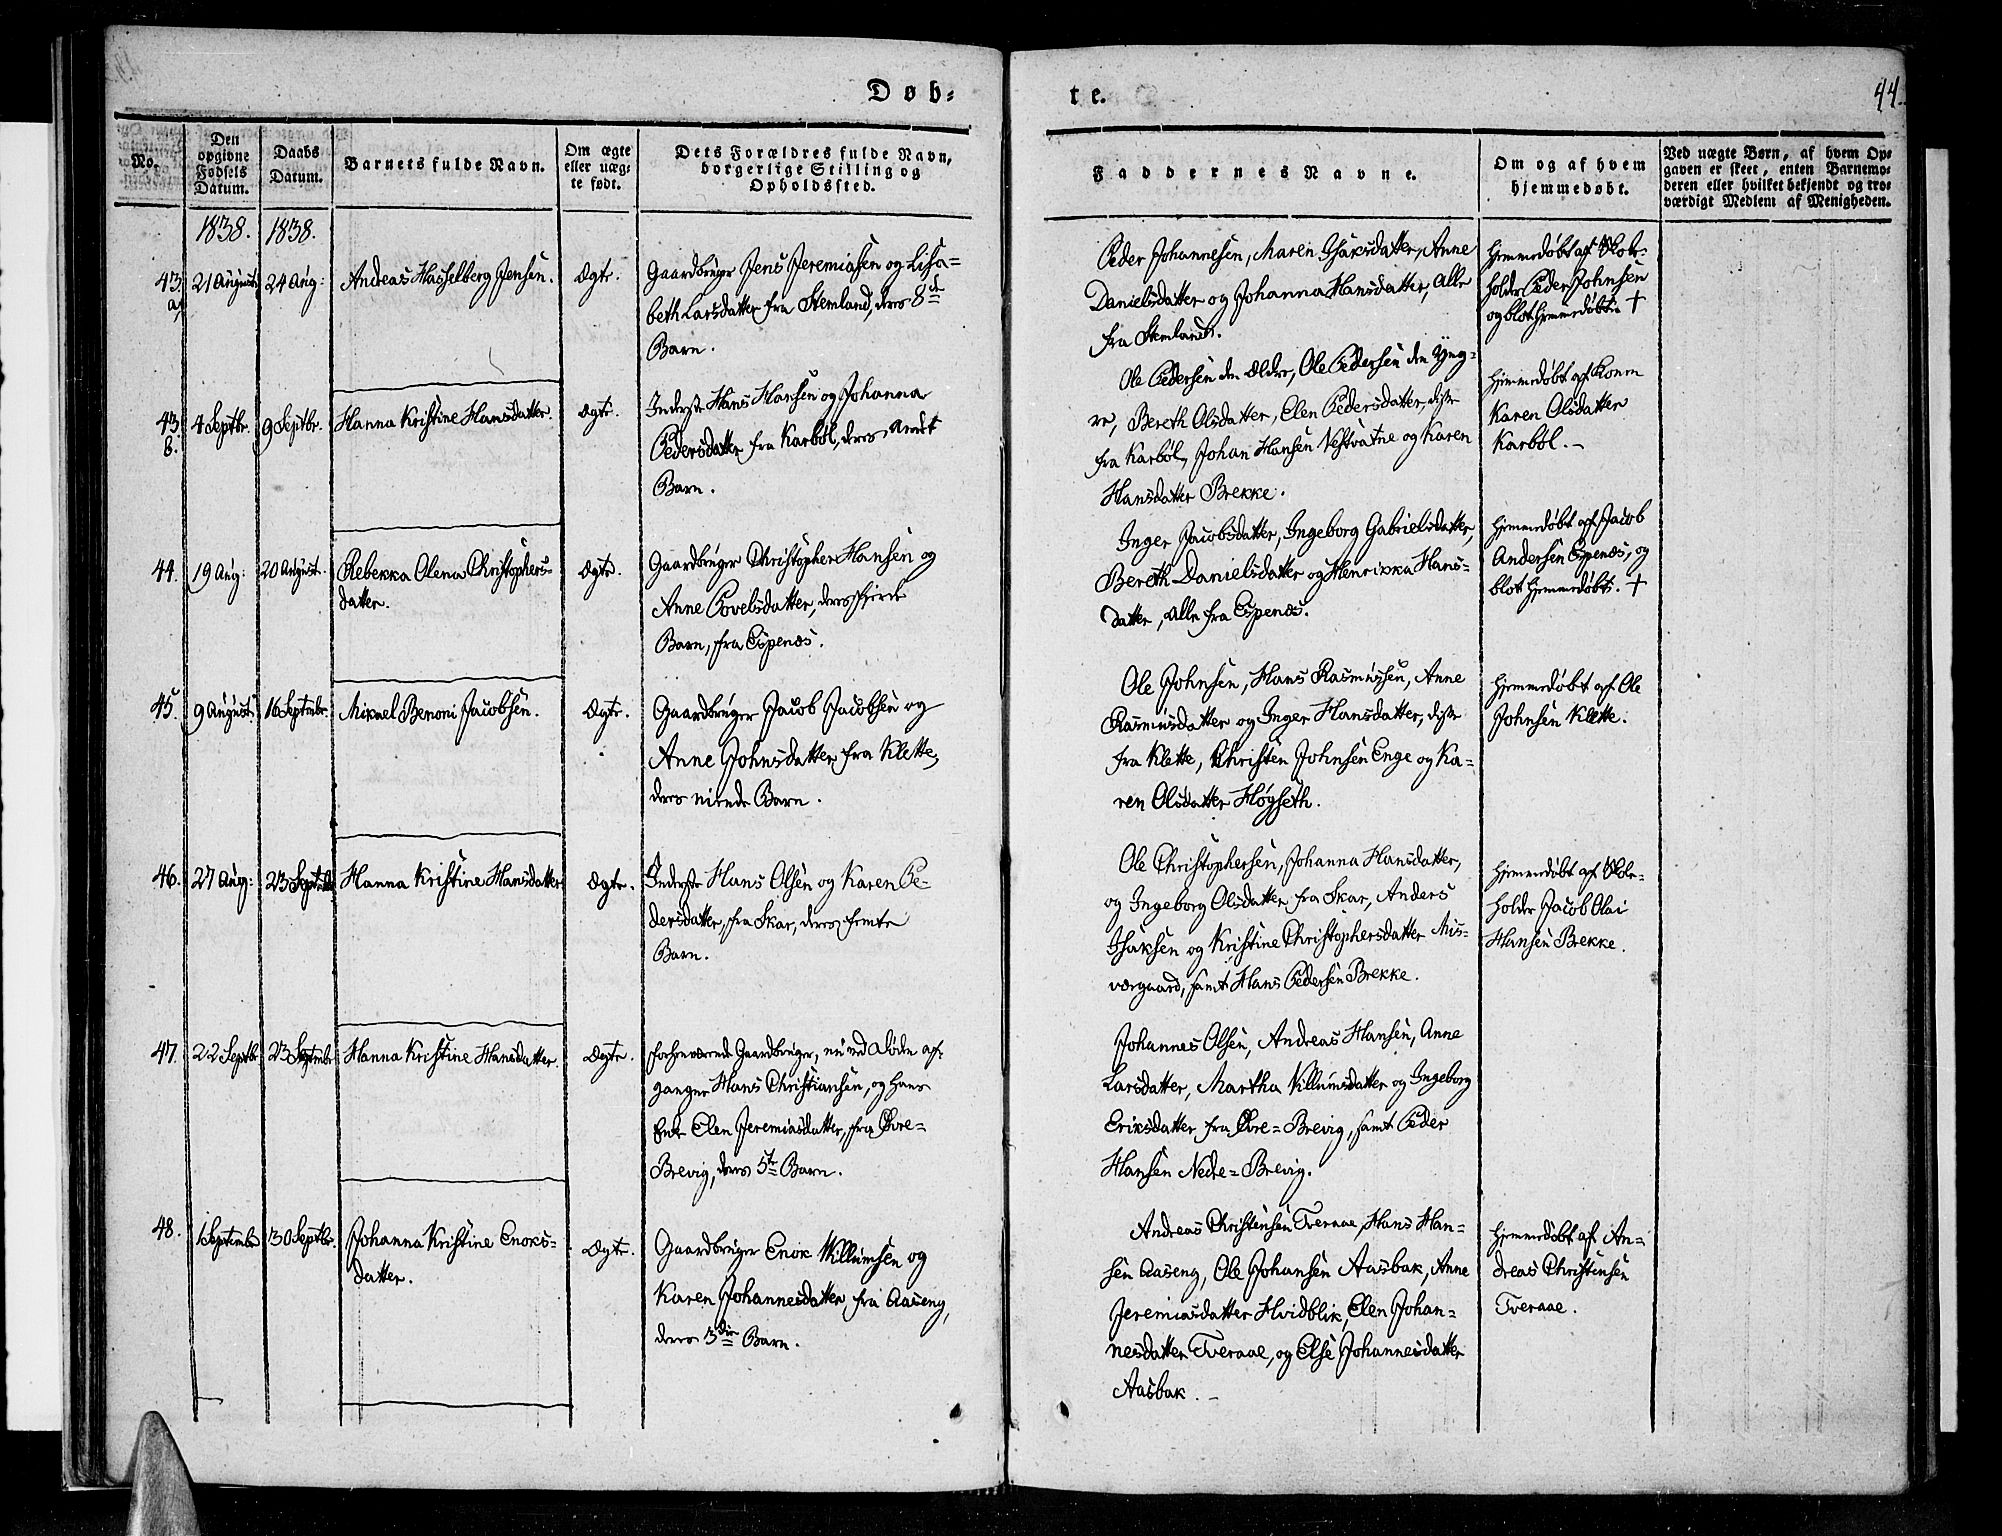 Døb-
te.
44.
No.
Den
opgivne
Fødsels
Datum.
Daabs
Datum.
Barnets fulde Navn.
Om ægte
eller uæg-
te født.
Dets Forældres fulde Navn,
borgerlige Stilling og
Opholdssted.
Faddernes Navne.
Om og af hvem
hjemmedøbt.
Ved uægte Børn, af hvem Op-
gaven er skeet, enten Barnemo-
deren eller hvilket bekjendt og tro-
værdigt Medlem af Menigheden.
1838. 1838.
43
a,
21 August
24 Aug:
Andreas Hasselberg Jensen.
Ægte.
Gaardbruger Jens Jeremiasen og Lisa-
beth Larsdatter fra Stemland, deres 8de
Barn.
Peder Johannesen, Maren Isaksdatter, Anne
Danielsdatter og Johanna Hansdatter, alle
fra Stemland.
Hjemmedøbt af Skole-
holder Peder Johnsen
og blot hjemmedøbt +
43
b.
4 Septbr.
9 Septbr.
Hanna Kristine Hansdatter.
Ægte.
Inderste Hans Hansen og Johanna
Pedersdatter fra Karbøl, deres andet
Barn.
Ole Pedersen den Ældre, Ole Pedersen den Yng-
re, Bereth Olsdatter, Elen Pedersdatter, disse
fra Karbøl, Johan Hansen Vestvatne og Karen
Hansdatter Brekke.
Hjemmedøbt af Konen
Karen Olsdatter
Karbøl. -
44.
19 Aug:
20 August.
Rebekka Olena Christophers-
datter.
Ægte.
Gaardbruger Christopher Hansen og
Anne Povelsdatter, deres fjerde
Barn, fra Espenæs.
Inger Jacobsdatter, Ingeborg Gabrielsdatter,
Bereth Danielsdatter og Henrikka Hans-
datter, alle fra Espenæs.
Hjemmedøbt af Jacob
Andersen Espenæs, og
blot hjemmedøbt. +
45.
9 August
16 Septembr.
Mikael Benoni Jacobsen.
Ægte.
Gaardbruger Jacob Jacobsen og
Anne Johnsdatter fra Klette,
deres niende Barn.
Ole Johnsen, Hans Rasmussen, Anne
Rasmusdatter og Inger Hansdatter, disse
fra Klette, Christen Johnsen Enge og Ka-
ren Olsdatter Høgseth.
Hjemmedøbt af Ole
Johnsen Klette.
46.
27 Aug:
23 Septembr
Hanna Kristine Hansdatter
Ægte.
Inderste Hans Olsen og Karen Pe-
dersdatter, fra Skar, deres femte
Barn.
Ole Christophersen, Johanna Hansdatter,
og Ingeborg Olsdatter fra Skar, Anders
Isaksen og Kristine Christophersdatter Mis-
værgaard, samt Hans Pedersen Brekke.
Hjemmedøbt af Skole-
holder Jacob Olai
Hansen Brekke.
47.
22 Septbr
23 Septembr
Hanna Kristine Hansdatter.
Ægte.
Forhenværende Gaardbruger, nu ved Døden af-
gangne Hans Christiansen, og hans
Enke Elen Jeremiasdatter, fra Øvre-
Brevig, deres 5te Barn.
Johannes Olsen, Andreas Hansen, Anne
Larsdatter, Martha Villumsdatter og Ingeborg
Eriksdatter fra Øvre-Brevig, samt Peder
Hansen Nedre-Brevig.
48.
1 Septembr
30 Septbr.
Johanna Kristine Enoks-
datter.
Ægte.
Gaardbruger Enok Willumsen og
Karen Johannesdatter fra Aaseng,
deres 3die Barn.
Andreas Christensen Tveraae, Hans Han-
sen Aaseng, Ole Johansen Aasbak, Anne
Jeremiasdatter Hvidblik, Elen Johan-
nesdatter Tveraae, og Else Johannesdatter
Aasbak. -
Hjemmedøbt af An-
dreas Christensen
Tveraae.